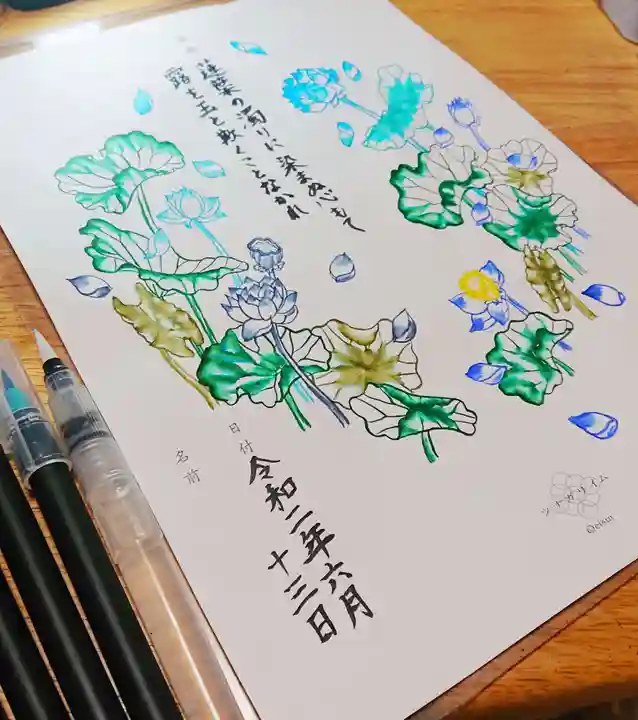 蓮葉の濁りに染まぬ心もて
露を玉と欺くことなかれ
日付
令和二年六月
十三日
名前